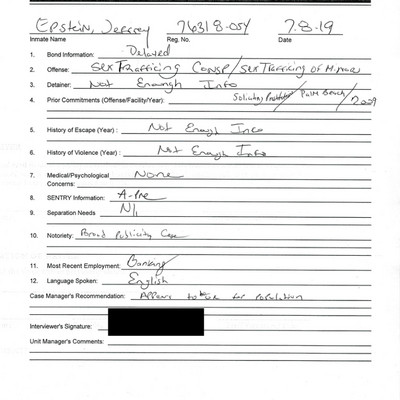 Epstein, Jeffrey 76318-054 7-8-19
Inmate Name Reg. No. Date
1. Bond Information: Delayed
2. Offense: Sex Trafficking Consp/Sex Trafficking of Minors
3. Detainer: Not Enough Info
4. Prior Commitments (Offense/Facility/Year): Soliciting Prostitution/Palm Beach/2009
5. History of Escape (Year) : Not Enough Info
6. History of Violence (Year) : Not Enough Info
7. Medical/Psychological None
Concerns:
8. SENTRY Information: A-Pre
9. Separation Needs N/
10. Notoriety: Broad Publicity Case
11. Most Recent Employment: Banking
12. Language Spoken: English
Case Manager's Recommendation: Appears to be for population
Interviewer's Signature:
Unit Manager's Comments: